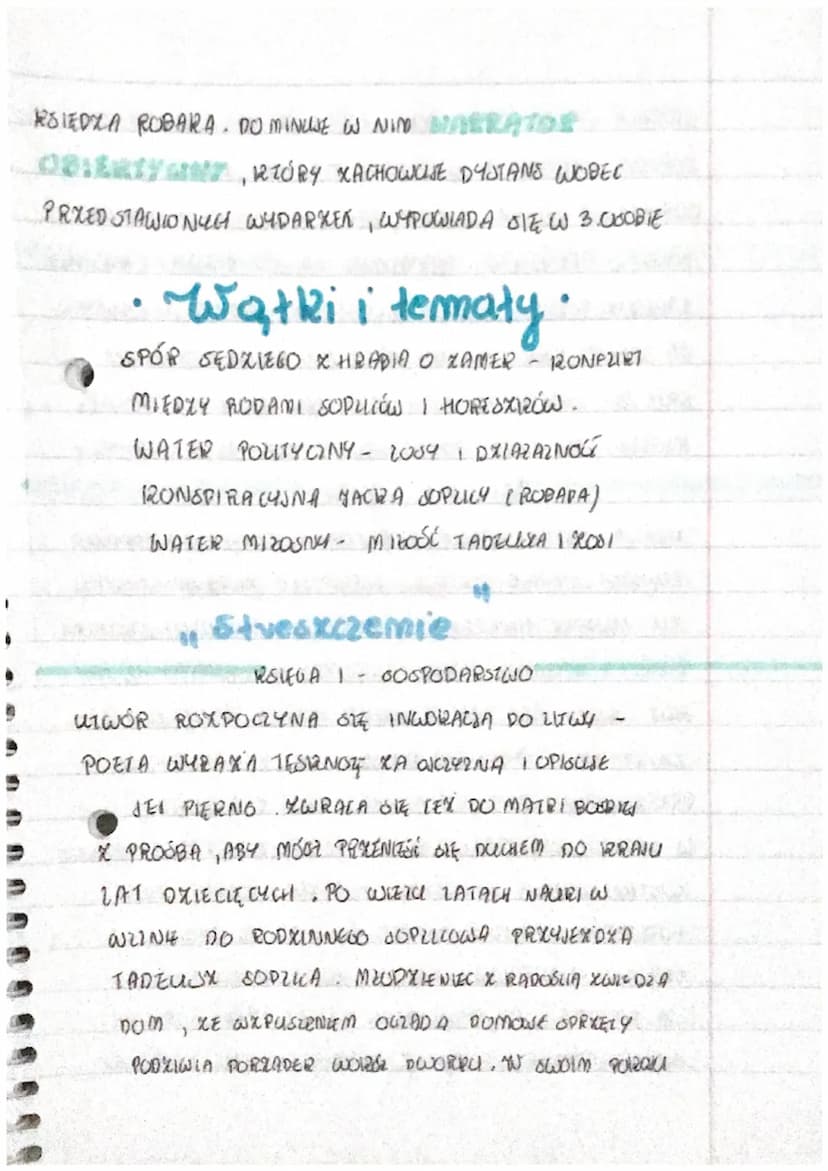 KSIĘDZA ROBAKA. DOMINUJE W NIM NARRATOR
OBIEKTYWNY, KTÓRY ZACHOWUJE DYSTANS WOBEC
PRZEDSTAWIONYCH WYDARZEŃ, WYPOWIADA SIĘ W 3.OSOBIE
• Wątki i tematy •
SPÓR SĘDZIEGO Z HRABIĄ O ZAMEK - KONFLIKT
MIĘDZY RODAMI SOPLICÓW I HORESZKÓW.
WĄTEK POLITYCZNY - LOSY I DZIAŁALNOŚĆ
KONSPIRACYJNA JACKA SOPLICY (ROBAKA)
WĄTEK MIŁOSNY - MIŁOŚĆ TADEUSZA I ZOSI
„Streszczenie"
KSIĘGA I - GOSPODARSTWO
UTWÓR ROZPOCZYNA SIĘ INWOKACJĄ DO LITWY -
POETA WYRAŻA TĘSKNOTĘ ZA OJCZYZNĄ I OPISUJE
JEJ PIĘKNO. ZWRACA SIĘ TEŻ DO MATKI BOSKIEJ
Z PROŚBĄ, ABY MÓGŁ PRZENIEŚĆ SIĘ DUCHEM DO KRAJU
LAT DZIECIĘCYCH. PO WIELU LATACH NAUKI W
WILNIE DO RODZINNEGO SOPLICOWA PRZYJEŻDŻA
TADEUSZ SOPLICA. MŁODZIENIEC Z RADOŚCIĄ ZWIEDZA
DOM, ZE WZRUSZENIEM OGLĄDA DOMOWE SPRZĘTY
PODZIWIA PORZĄDEK WOKÓŁ DWORKU. W SWOIM POKOJU